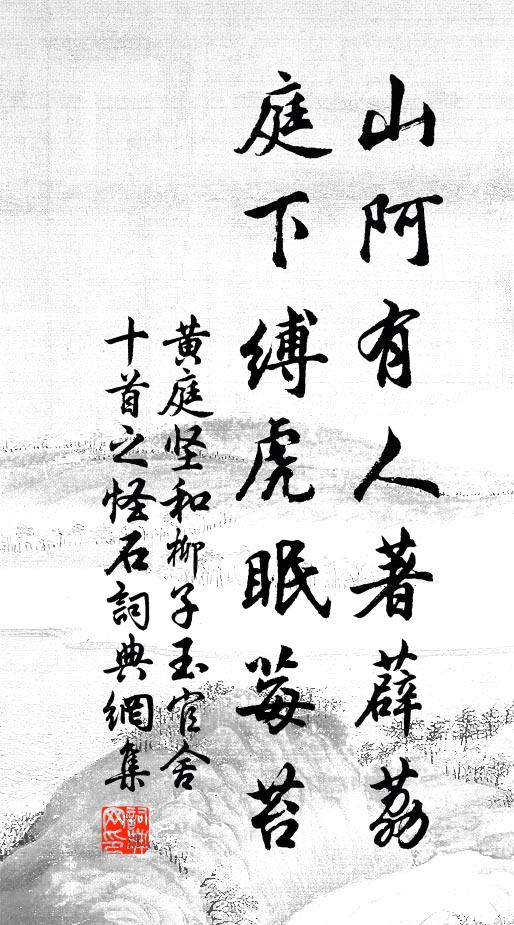 山阿有人著薜荔
庭下缚虎眠莓苔
黄庭坚和柳子玉官舍
十首之怪石詞典網集
詞典網印